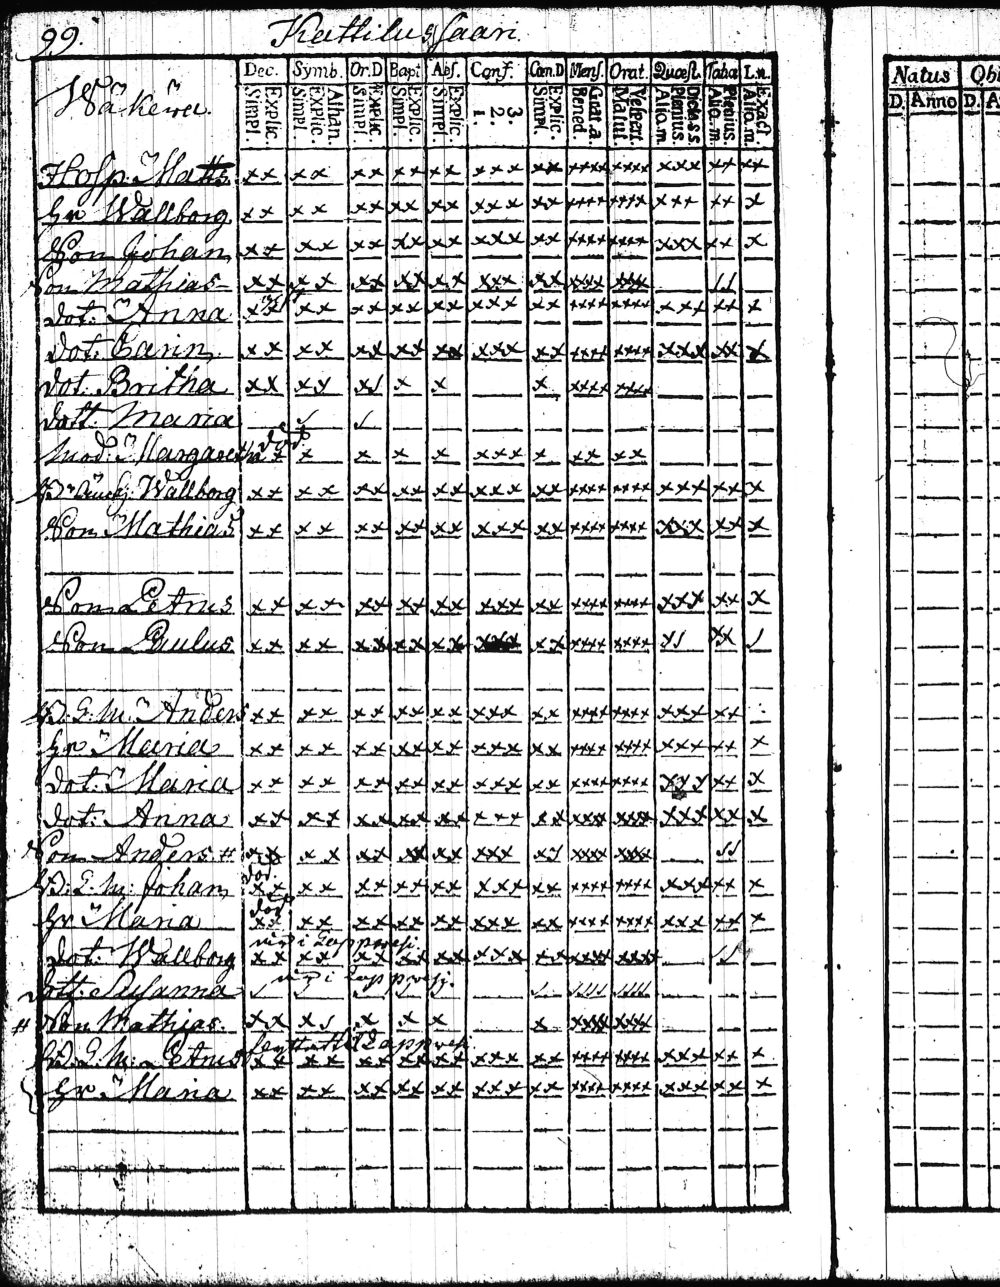 99. Kattilussaari.
Dec. Symb. Or.D Bapt Abs. Conf. Cœn.D Mens. Orat. Quæst. Taba L.n. Natus Obi
Wäkewä.
Simpl. Explic. Simpl. Explic. Athan. Simpl. Explic. Simpl. Explic. Simpl. Explic. 1. 2. 3. Simpl. Explic. Bened. Grat.a. Matut. Vespert. Alio.m Plenius. Dict.s.s Alio.m Plenius. Alio.m Exact D. Anno D. A
Hosp. Matts xx xx xx xx xx xxx xx xxxx xxxx xxx xx xx
hr Wallborg xx xx xx xx xx xxx xx xxxx xxxx xxx xx x
Son Johan xx xx xx xx xx xxx xx xxxx xxxx xxx xx x
Son Mathias xx xx xx xx xx xxx xx xxxx xxxx
dot: Anna xx xx xx xx xx xxx xx xxxx xxxx xxx xx x
dot: Carin xx xx xx xx xx xxx xx xxxx xxxx xxx xx x
dot: Britha xx xx x x x x xxxx xxxx
dott. Maria
död
Mod: Margaretha x x x x x xxx x xx xx
Wallborg xx xx xx xx xx xxx xx xxxx xxxx xxx xx x
Son Mathias xx xx xx xx xx xxx xx xxxx xxxx xxx xx x
Son Petrus xx xx xx xx xx xxx xx xxxx xxxx xxx xx x
Son Paulus xx xx xx xx xx xxx xx xxxx xxxx x xx
B. S. M. Anders xx xx xx xx xx xxx xx xxxx xxxx xxx xx
hr Maria xx xx xx xx xx xxx xx xxxx xxxx xxx xx x
dot: Maria xx xx xx xx xx xxx xx xxxx xxxx xxx xx x
dot: Anna xx xx xx xx xx xxx xx xxxx xxxx xxx xx x
Son Anders # xx xx xx xx xx xxx x xxxx xxxx
död
B. S. M. Johan xx xx xx xx xx xxx xx xxxx xxxx xxx xx x
död
hr Maria xx xx xx xx xx xxx xx xxxx xxxx xxx xx x
i Lappvesi.
dot. Wallborg xx xx xx xx xx xxx xx xxxx xxxx
i Lappvesi.
dott. Susanna
# Son Mathias xx x x x x x xxxx xxxx
Lappvesi
B. S. M. Petrus xx xx xx xx xx xxx xx xxxx xxxx xxx xx x
hr Maria xx xx xx xx xx xxx xx xxxx xxxx xxx xx x